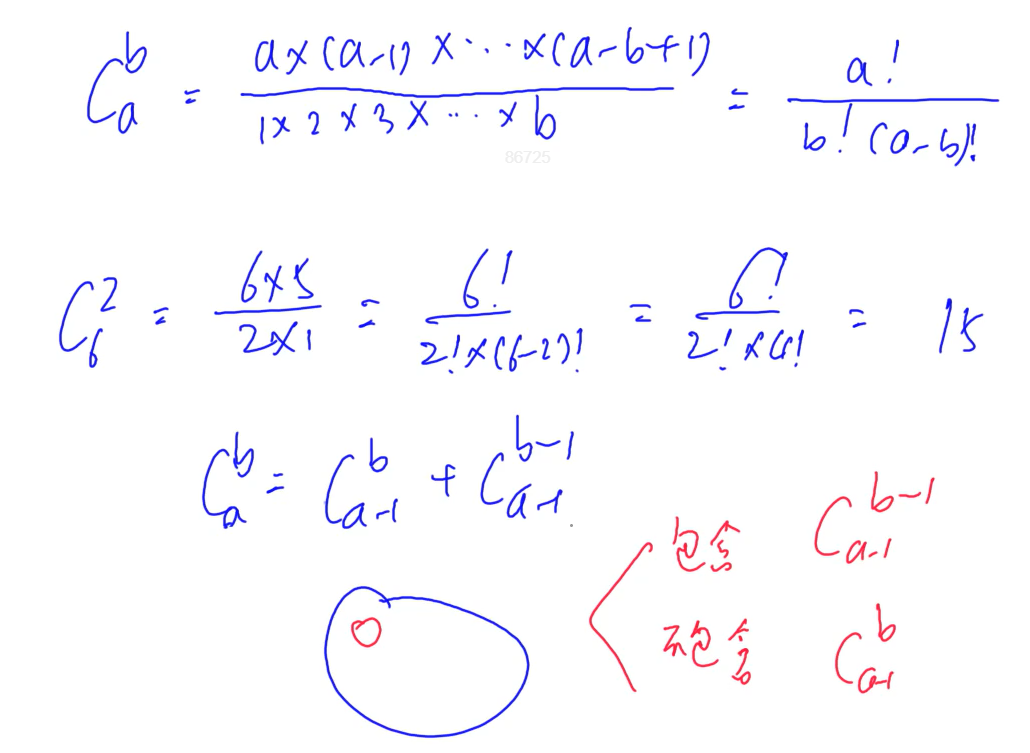 C_a^b = \frac{a×(a-1)×⋯×(a-b+1)}{1×2×3×⋯×b} = \frac{a!}{b!(a-b)!}
86725
C_6^2 = \frac{6×5}{2×1} = \frac{6!}{2!×(6-2)!} = \frac{6!}{2!×4!} = 15
C_a^b = C_{a-1}^b + C_{a-1}^{b-1}
包含 C_{a-1}^{b-1}
不包含 C_{a-1}^b